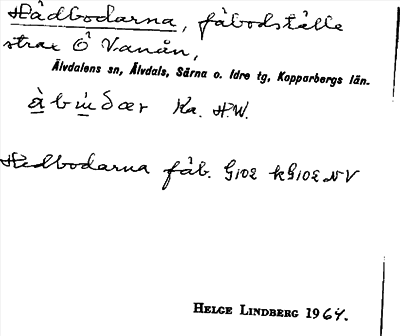 Hådbodarna, fäbodställe
strax Ö Vanån,
Älvdalens sn, Älvdals, Särna o. Idre tg, Kopparbergs län.
Ka. H.W.
Hedbodarna fäb. G102 kG102 NV
HELGE LINDBERG 1964.